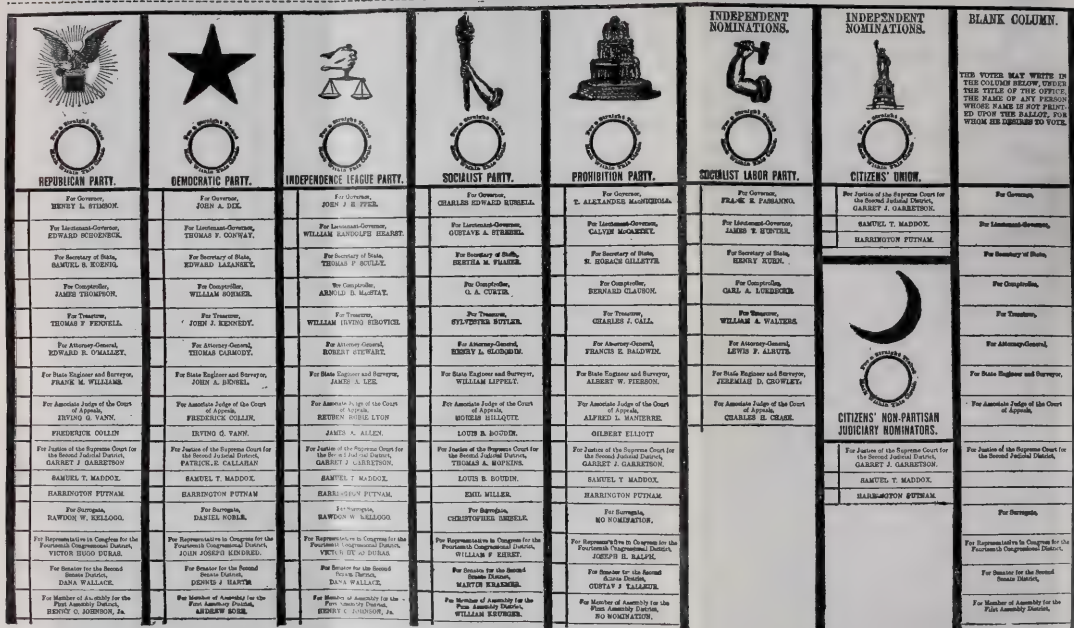 For a Straight Ticket
Mark Within This Circle.
REPUBLICAN PARTY.
For Governor,
HENRY L. STIMSON.
For Lieutenant-Governor,
EDWARD SCHOENECK.
For Secretary of State,
SAMUEL S. KOENIG.
For Comptroller,
JAMES THOMPSON.
For Treasurer,
THOMAS F FENNELL.
For Attorney-General,
EDWARD R. O'MALLEY.
For State Engineer and Surveyor,
FRANK M. WILLIAMS.
For Associate Judge of the Court
of Appeals,
IRVING G. VANN.
FREDERICK COLLIN
For Justice of the Supreme Court for
the Second Judicial District,
GARRET J GARRETSON.
SAMUEL T. MADDOX.
HARRINGTON PUTNAM.
For Surrogate,
RAWDON W. KELLOGG.
For Representative in Congress for the
Fourteenth Congressional District,
VICTOR HUGO DURAS.
For Senator for the Second
Senate District,
DANA WALLACE.
For Member of Assembly for the
First Assembly District,
HENRY C. JOHNSON, Jr.
For a Straight Ticket
Mark Within This Circle.
DEMOCRATIC PARTY.
For Governor,
JOHN A. DIX.
For Lieutenant-Governor,
THOMAS F. CONWAY.
For Secretary of State,
EDWARD LAZANSKY.
For Comptroller,
WILLIAM SOHMER.
For Treasurer,
JOHN J. KENNEDY.
For Attorney-General,
THOMAS CARMODY.
For State Engineer and Surveyor,
JOHN A. BENSEL.
For Associate Judge of the Court
of Appeals,
FREDERICK COLLIN.
IRVING G. VANN.
For Justice of the Supreme Court for
the Second Judicial District,
PATRICK E CALLAHAN
SAMUEL T. MADDOX.
HARRINGTON PUTNAM
For Surrogate,
DANIEL NOBLE.
For Representative in Congress for the
Fourteenth Congressional District,
JOHN JOSEPH KINDRED.
For Senator for the Second
Senate District,
DENNIS J HARTE
For Member of Assembly for the
First Assembly District,
ANDREW
For a Straight Ticket
Mark Within This Circle.
INDEPENDENCE LEAGUE PARTY.
For Governor,
JOHN J HOPPER.
For Lieutenant-Governor,
WILLIAM RANDOLPH HEARST.
For Secretary of State,
THOMAS F SCULLY.
For Comptroller,
ARNOLD B. MacSTAY.
For Treasurer,
WILLIAM IRVING SIROVICH.
For Attorney-General,
ROBERT STEWART.
For State Engineer and Surveyor,
JAMES A. LEE.
For Associate Judge of the Court
of Appeals,
REUBEN ROBIE LYON
JAMES A. ALLEN.
For Justice of the Supreme Court for
the Second Judicial District,
GARRET J GARRETSON.
SAMUEL T MADDOX.
HARRINGTON PUTNAM.
For Surrogate,
RAWDON W KELLOGG.
For Representative in Congress for the
Fourteenth Congressional District,
VICTOR HUGO DURAS.
For Senator for the Second
Senate District,
DANA WALLACE.
For Member of Assembly for the
First Assembly District,
HENRY C JOHNSON, Jr.
For a Straight Ticket
Mark Within This Circle.
SOCIALIST PARTY.
For Governor,
CHARLES EDWARD RUSSELL.
For Lieutenant-Governor,
GUSTAVE A. STREBEL.
For Secretary of State,
BERTHA M. FRASER.
For Comptroller,
O. A. CURTIS.
For Treasurer,
SYLVESTER BUTLER.
For Attorney-General,
HENRY L. SLOBODIN.
For State Engineer and Surveyor,
WILLIAM LIPPELT.
For Associate Judge of the Court
of Appeals,
MORRIS HILLQUIT.
LOUIS B. BOUDIN.
For Justice of the Supreme Court for
the Second Judicial District,
THOMAS A. HOPKINS.
LOUIS B. BOUDIN.
EMIL MILLER.
For Surrogate,
CHRISTOPHER
For Representative in Congress for the
Fourteenth Congressional District,
WILLIAM F EHRET.
For Senator for the Second
Senate District,
MARTIN KRAEMER.
For Member of Assembly for the
First Assembly District,
WILLIAM KRUEGER.
For a Straight Ticket
Mark Within This Circle.
PROHIBITION PARTY.
For Governor,
T. ALEXANDER MacNICHOLL.
For Lieutenant-Governor,
CALVIN McCARTHY.
For Secretary of State,
N. HORACE GILLETTE.
For Comptroller,
BERNARD CLAUSON.
For Treasurer,
CHARLES J. CALL.
For Attorney-General,
FRANCIS E. BALDWIN.
For State Engineer and Surveyor,
ALBERT W. PIERSON.
For Associate Judge of the Court
of Appeals,
ALFRED L. MANIERRE.
GILBERT ELLIOTT
For Justice of the Supreme Court for
the Second Judicial District,
GARRET J. GARRETSON.
SAMUEL T MADDOX.
HARRINGTON PUTNAM.
For Surrogate,
NO NOMINATION.
For Representative in Congress for the
Fourteenth Congressional District,
JOSEPH H. RALPH.
For Senator for the Second
Senate District,
GUSTAV J
For Member of Assembly for the
First Assembly District,
NO NOMINATION.
INDEPENDENT
NOMINATIONS.
For a Straight Ticket
Mark Within This Circle.
SOCIALIST LABOR PARTY.
For Governor,
FRANK E. PASSANNO.
For Lieutenant-Governor,
JAMES T. HUNTER.
For Secretary of State,
HENRY KUHN.
For Comptroller,
CARL A. LUEDECKE.
For Treasurer,
WILLIAM A. WALTERS.
For Attorney-General,
LEWIS F. ALRUTZ.
For State Engineer and Surveyor,
JEREMIAH D. CROWLEY.
For Associate Judge of the Court
of Appeals,
CHARLES H. CHASE.
INDEPENDENT
NOMINATIONS.
For a Straight Ticket
Mark Within This Circle.
CITIZENS' UNION.
For Justice of the Supreme Court for
the Second Judicial District,
GARRET J. GARRETSON.
SAMUEL T. MADDOX.
HARRINGTON PUTNAM.
For a Straight Ticket
Mark Within This Circle.
CITIZENS' NON-PARTISAN
JUDICIARY NOMINATORS.
For Justice of the Supreme Court for
the Second Judicial District,
GARRET J. GARRETSON.
SAMUEL T. MADDOX.
HARRINGTON PUTNAM.
BLANK COLUMN.
THE VOTER MAY WRITE IN
THE COLUMN BELOW, UNDER
THE TITLE OF THE OFFICE,
THE NAME OF ANY PERSON
WHOSE NAME IS NOT PRINT-
ED UPON THE BALLOT, FOR
WHOM HE DESIRES TO VOTE.
For Governor,
For Lieutenant-Governor,
For Secretary of State,
For Comptroller,
For Treasurer,
For Attorney-General,
For State Engineer and Surveyor,
For Associate Judge of the Court
of Appeals,
For Justice of the Supreme Court for
the Second Judicial District,
For Surrogate,
For Representative in Congress for the
Fourteenth Congressional District,
For Senator for the Second
Senate District,
For Member of Assembly for the
First Assembly District,